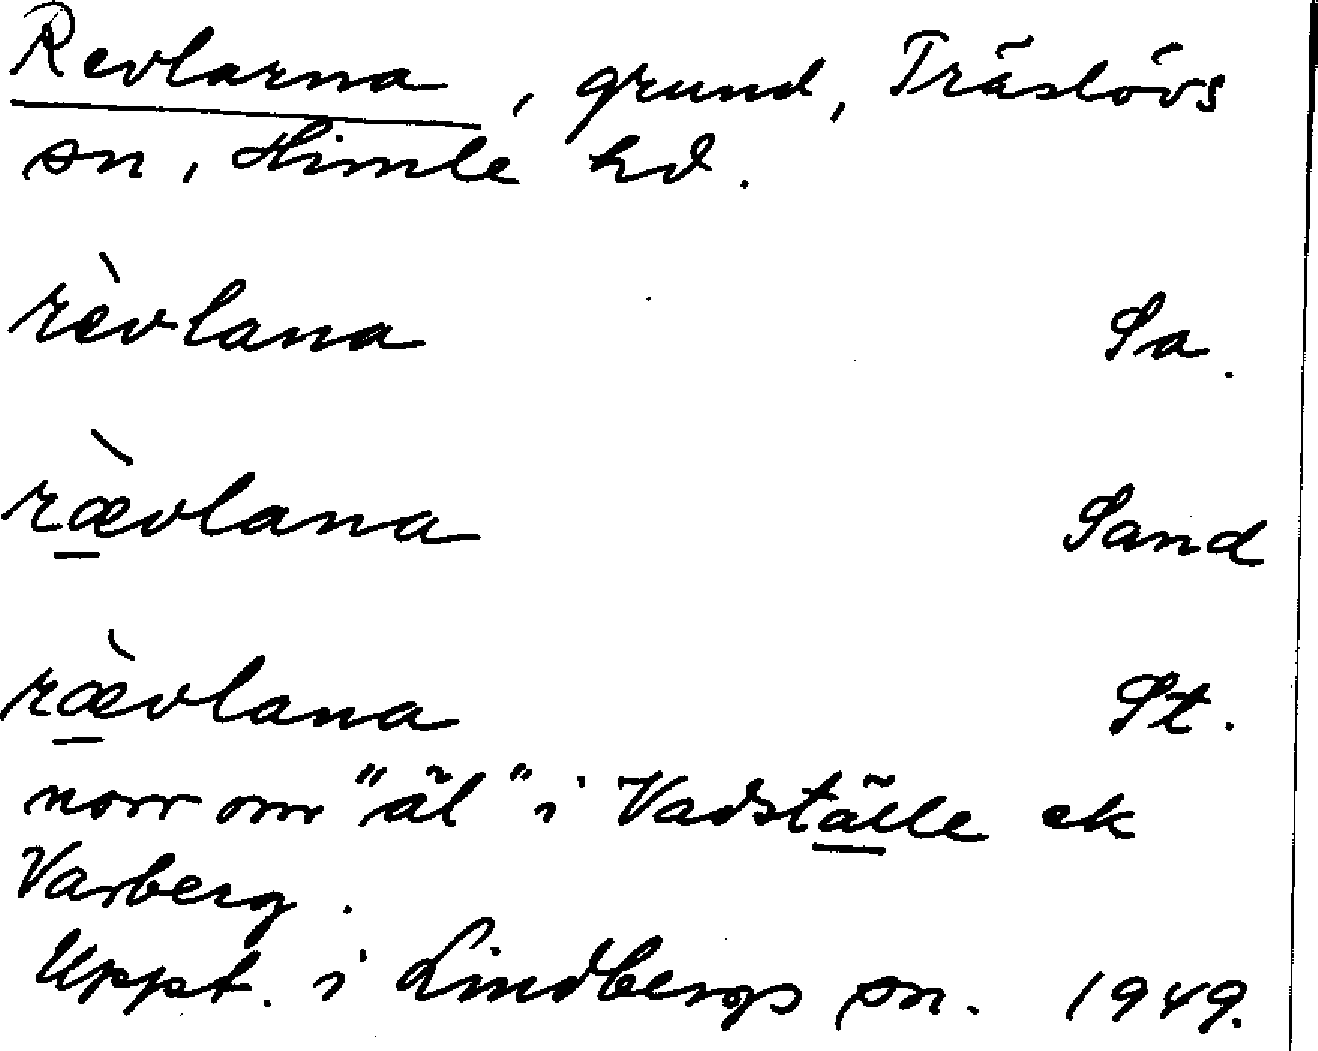 Revlarna, grund, Träslövs
sn, Himle hd.
rèvlana Sa.
ræ̀vlana Sand
ræ̀vlana St.
norr om "äl" i Vadställe ek
Varberg.
Uppt. i Lindbergs sn. 1949.